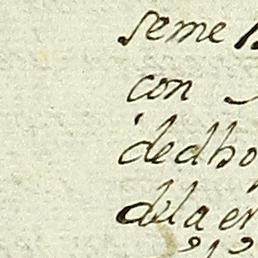 seme
con
dedho
dela en